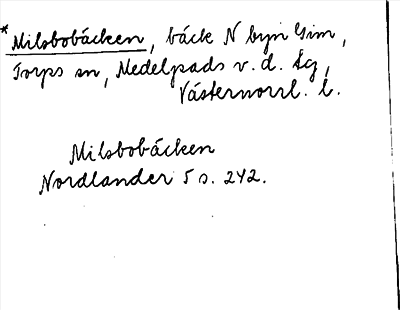 * Milsbobäcken, bäck N byn Gim,
Torps sn, Medelpads v. d. tg,
Västernorrl. l.
Milsbobäcken
Nordlander 5 s. 242.